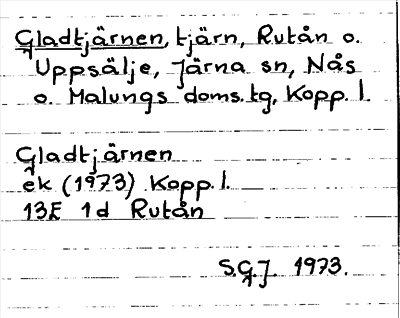 Gladtjärnen, tjärn, Rutån o.
Uppsälje, Järna sn, Nås
o. Malungs doms.tg, Kopp. l.
Gladtjärnen
ek (1973) Kopp. l.
13E 1d Rutån
S.G.J. 1973.